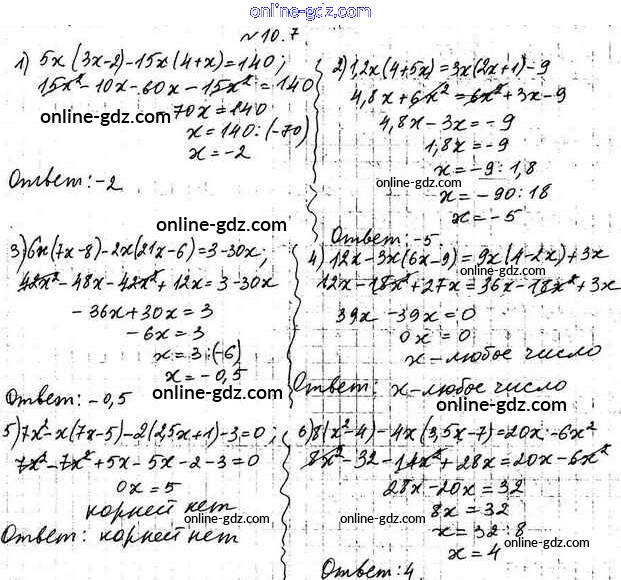 online-gdz.com
№10.7.
1) 5x(3x-2)-15x(4+x)=140;
15x²-10x-60x-15x²=140
online-gdz.com
70x=140
x=140:(-70)
x=-2
Ответ:-2
2) 1,2x(4+5x)=3x(2x+1)-9
4,8x+6x²=6x²+3x-9
online-gdz.com
4,8x-3x=-9
1,8x=-9
x=-9:1,8
online-gdz.com
x=-90:18
x=-5
Ответ:-5.
online-gdz.com
3) 6x(7x-8)-2x(21x-6)=3-30x;
42x²-48x-42x²+12x=3-30x
online-gdz.com
-36x+30x=3
-6x=3
x=3:(-6)
online-gdz.com
x=-0,5
Ответ: -0,5
4) 12x-3x(6x-9)=9x(4-2x)+3x
online-gdz.com
12x-18x²+27x=36x-18x²+3x
39x-39x=0
0x=0
online-gdz.com
x-любое число
Ответ: x-любое число
online-gdz.com
5) 7x²-x(7x-5)-2(2,5x+1)-3=0;
7x²-7x²+5x-5x-2-3=0
online-gdz.com
0x=5
корней нет
online-gdz.com
Ответ: корней нет
6) 8(x²-4)-4x(3,5x-7)=20x-6x²
8x²-32-14x²+28x=20x-6x²
online-gdz.com
28x-20x=32
8x=32
online-gdz.com
x=32:8
x=4
online-gdz.com
Ответ:4
online-gdz.com